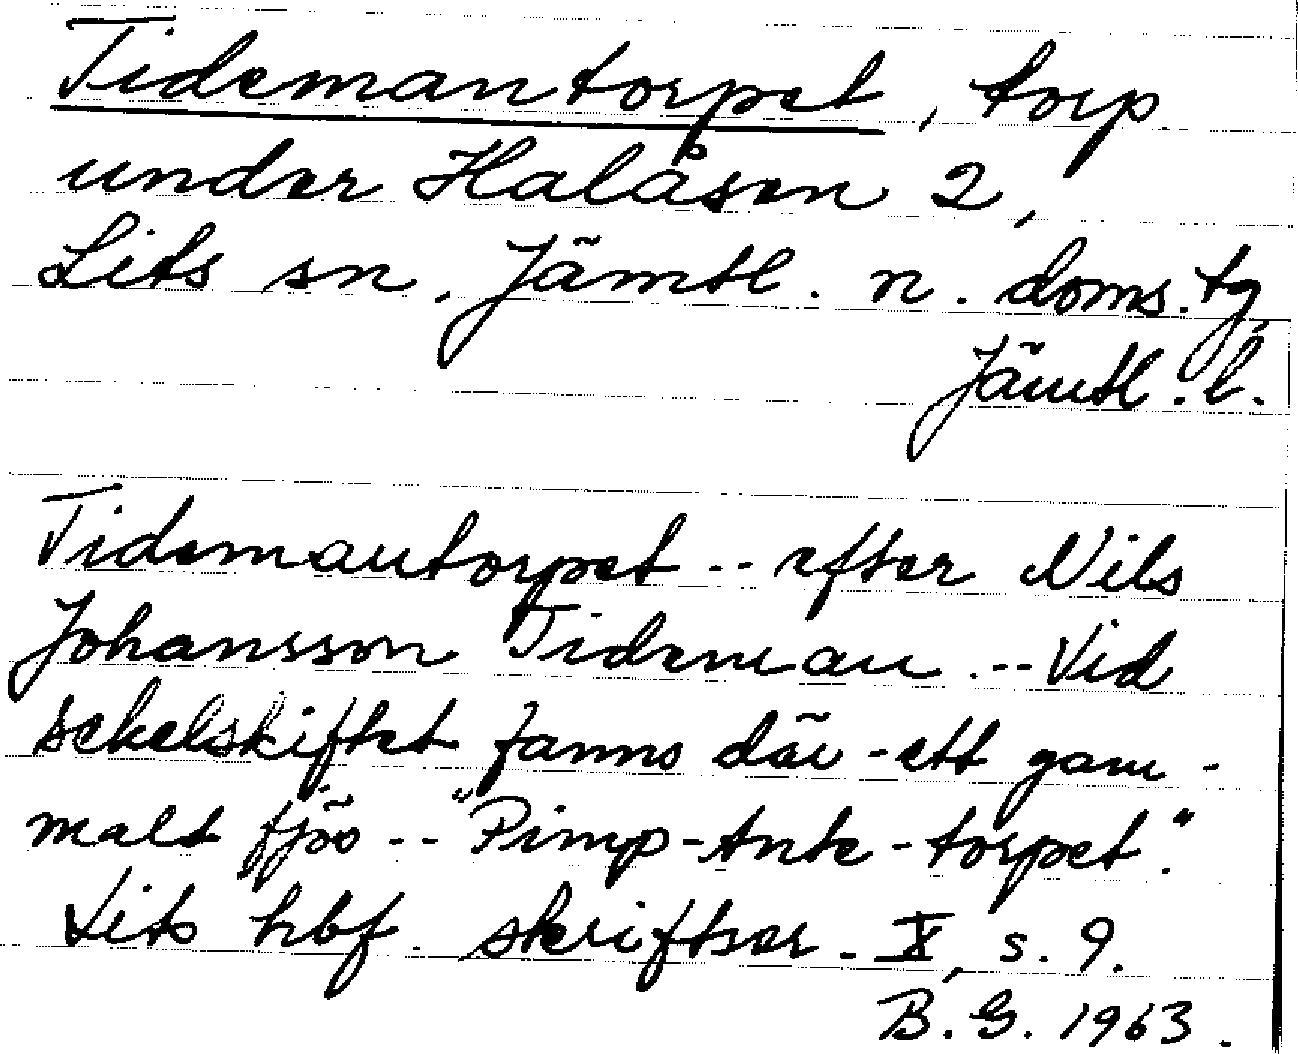 Tidemantorpet, torp
under Halåsen 2,
Lits sn. Jämtl. n. doms. tg,
Jämtl. l.
Tidemantorpet -- efter Nils
Johansson Tideman -- Vid
sekelskiftet fanns där - ett gam-
malt fjös -- "Pimp-Ante-torpet."
Lits hbf. skriftser. X, s. 9.
B. G. 1963.